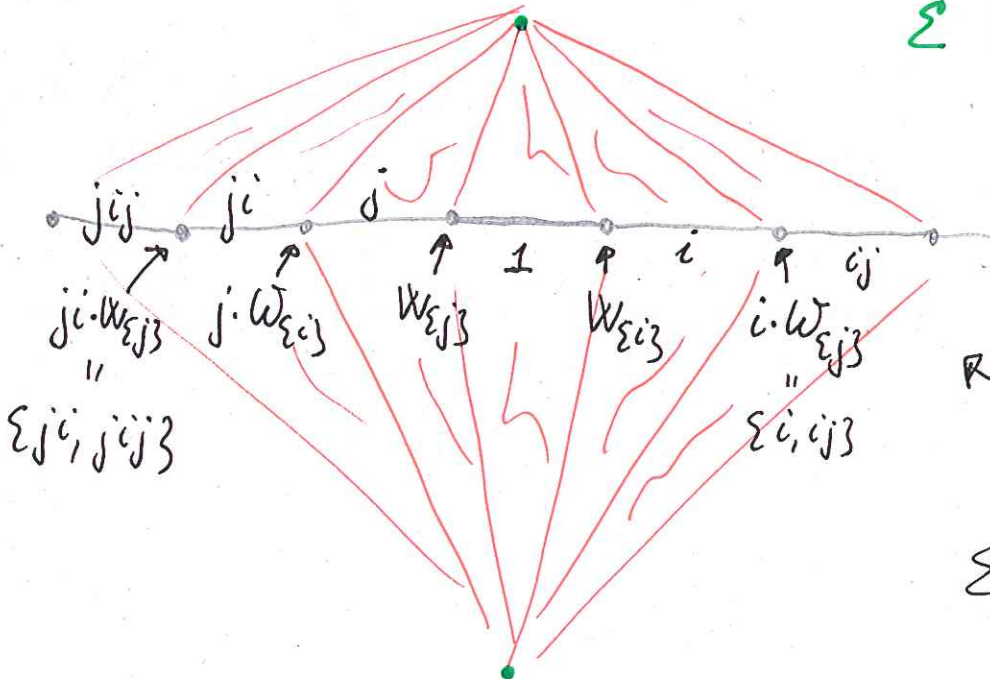 Σ
jij ji j 1 i ij
ji·W_{j} j·W_{i} W_{j} W_{i} i·W_{j}
" "
{ji, jij} {i, ij}